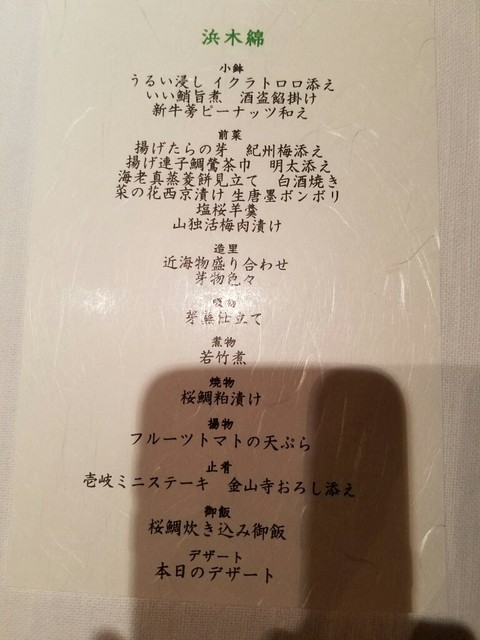 浜木綿
小鉢
うるい浸し イクラトロロ添え
いい鮹旨煮　酒盗餡掛け
新牛蒡ピーナッツ和え
前菜
揚げたらの芽　紀州梅添え
揚げ連子鯛鶯茶巾　明太添え
海老真蒸菱餅見立て　白酒焼き
菜の花西京漬け 生唐墨ボンボリ
塩桜羊羹
山独活梅肉漬け
造里
近海物盛り合わせ
芽物色々
吸物
仕立て
煮物
若竹煮
焼物
桜鯛粕漬け
揚物
フルーツトマトの天ぷら
止肴
壱岐ミニステーキ　金山寺おろし添え
御飯
桜鯛炊き込み御飯
デザート
本日のデザート